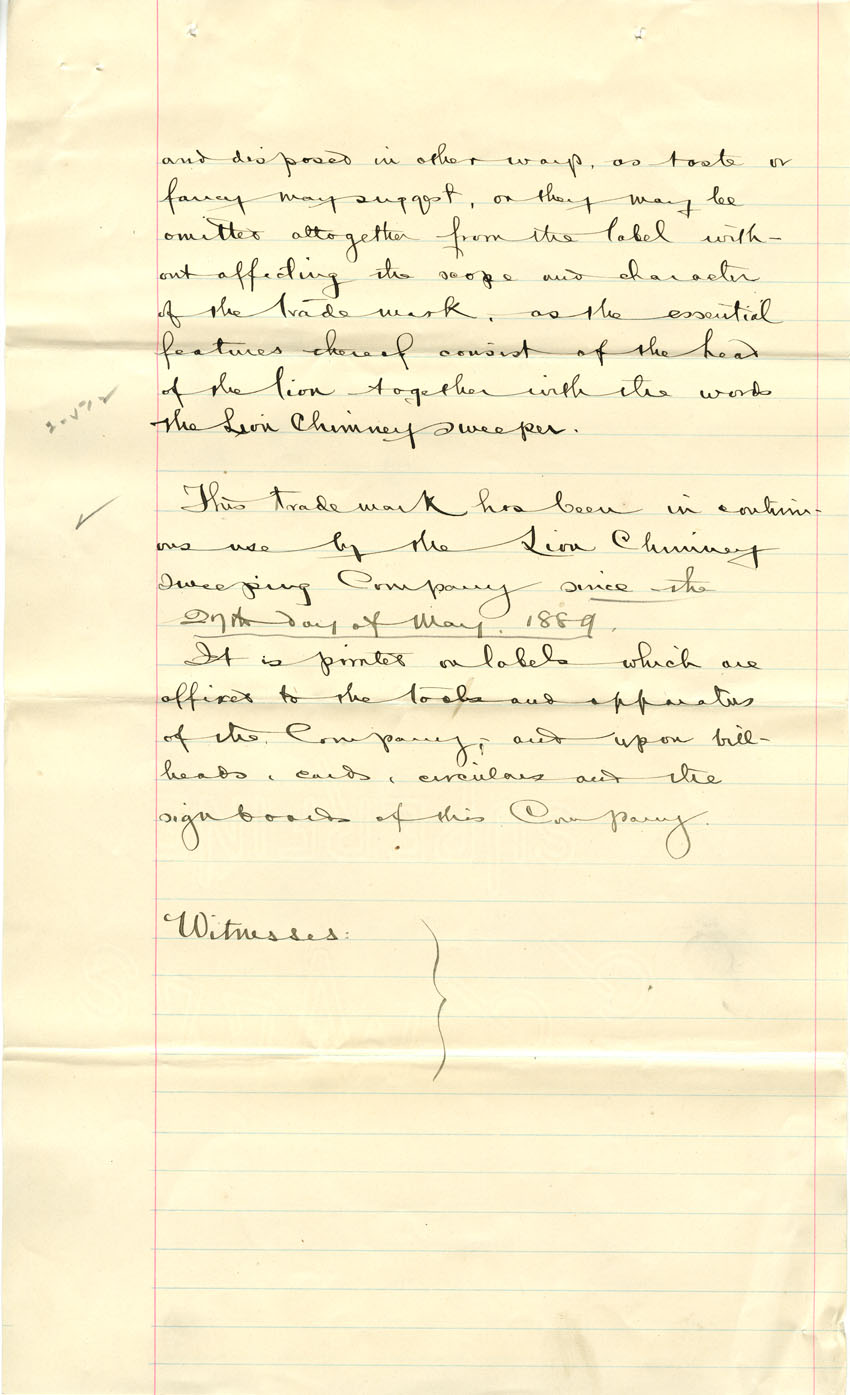 and disposed in other ways, as taste or
fancy may suggest, or they may be
omitted altogether from the label with-
out affecting the scope and character
of the trade mark, as the essential
features thereof consist of the head
of the lion together with the words
the Lion Chimney Sweeper.
This trade mark has been in continu-
ous use by the Lion Chimney
Sweeping Company since the
27th day of May, 1889.
It is printed on labels which are
affixed to the tools and apparatus
of the Company; and upon bill-
heads, cards, circulars and the
signboards of this Company.
Witnesses: